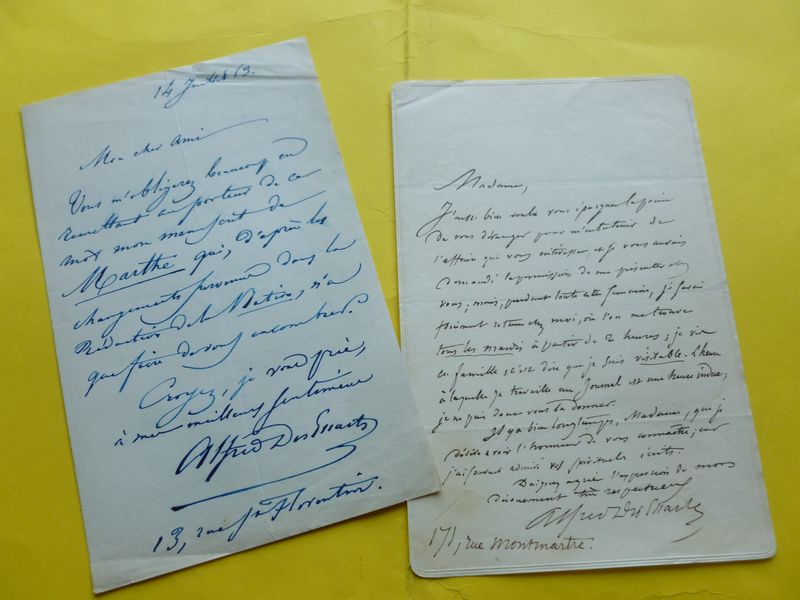 14 Juillet 63.
Mon cher Ami
Vous m'obligerez beaucoup en
remettant au porteur de ce
mot mon manuscrit de
Marthe qui, d'après les
changements survenus dans la
Rédaction de la Nation, n'a
que faire de vous encombrer.
Croyez, je vous prie,
à mes meilleurs sentiments
Alfred Des Essarts
13, rue St Florentin.
Madame,
J'aurais bien voulu vous épargner la peine
de vous déranger pour m'entretenir de
l'affaire qui vous intéresse et je vous aurais
demandé la permission de me présenter chez
vous; mais, pendant toute cette semaine, je serai
forcément retenu chez moi, où l'on me trouve
tous les mardis à partir de 2 heures; je vis
en famille; c'est dire que je suis visitable. L'heure
à laquelle je travaille au Journal est une heure indue;
je ne puis donc vous la donner.
Il y a bien longtemps, Madame, que je
désire avoir l'honneur de vous connaître; car
j'ai souvent admiré vos spirituels écrits.
Daignez agréer l'expression de mon
dévouement très respectueux
Alfred Des Essarts
171, rue Montmartre.